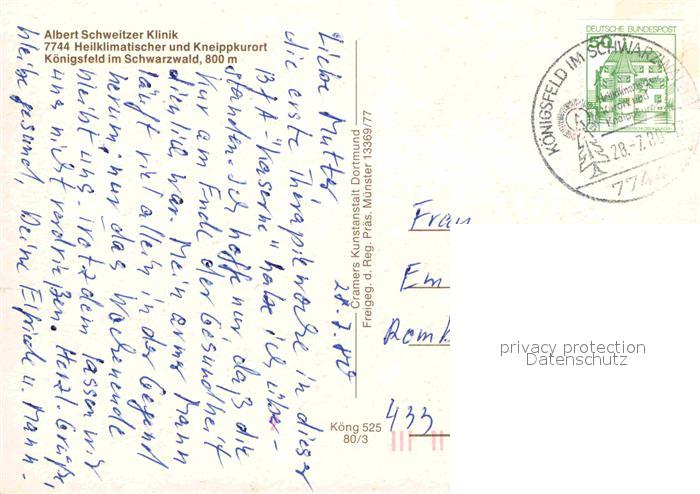 Albert Schweitzer Klinik
7744 Heilklimatischer und Kneippkurort
Königsfeld im Schwarzwald, 800 m
DEUTSCHE BUNDESPOST
50
KÖNIGSFELD IM SCHWARZWALD
Heilklimatischer
Kurort und
Kneippkurort
28.-7.80
7744
28.7.80
Liebe Mutter,
die erste Therapiewoche in dieser
BfA-"Kaserne" habe ich über-
standen. Ich hoffe nur daß die
Kur am Ende der Gesundheit
dienlich war. Mein armer Mann
läuft viel allein in der Gegend
herum, nur das Wochenende
bleibt uns - trotzdem lassen wir
uns nicht verdrießen. Herzl. Grüße,
bleibe gesund, Deine Elfriede u. Mann.
Cramers Kunstanstalt Dortmund
Freigeg. d. Reg. Präs. Münster 13369/77
Frau
Em
433
Köng 525
80/3
privacy protection
Datenschutz